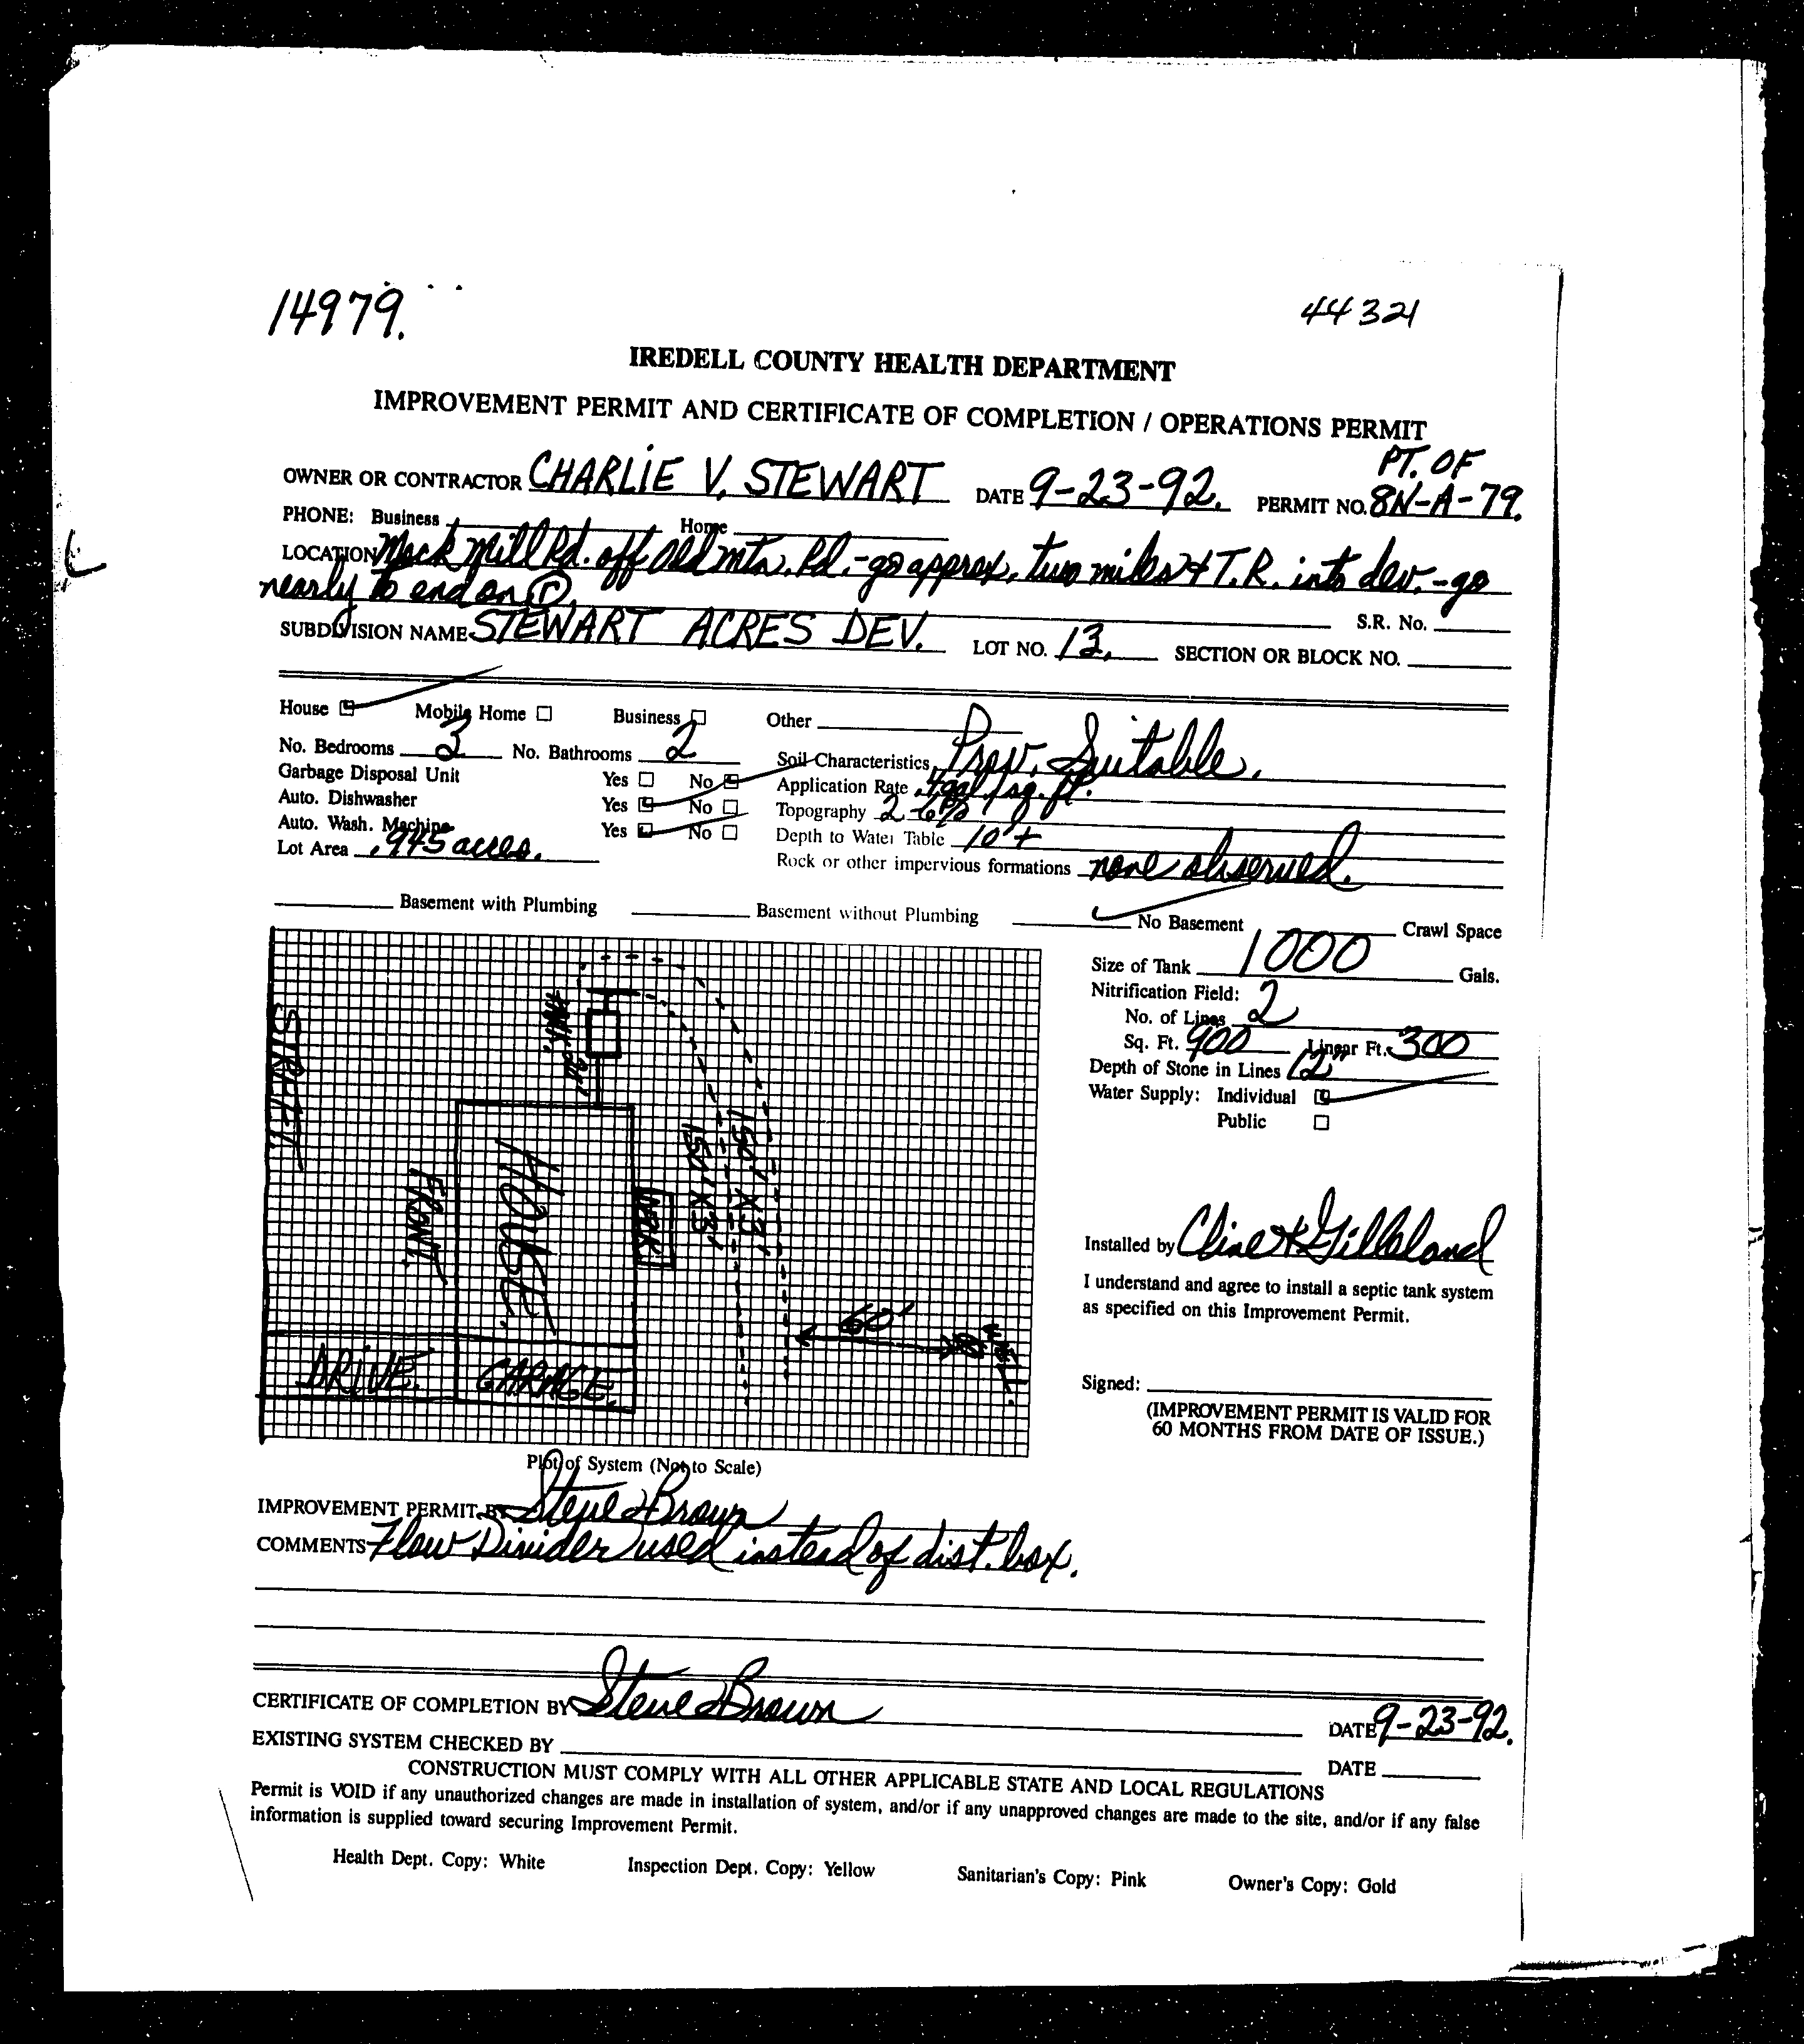 14979.
44321
IREDELL COUNTY HEALTH DEPARTMENT
IMPROVEMENT PERMIT AND CERTIFICATE OF COMPLETION / OPERATIONS PERMIT
PT. OF
OWNER OR CONTRACTOR CHARLIE V. STEWART DATE 9-23-92. PERMIT NO. 8N-A-79.
PHONE: Business Home
LOCATION Mack Mill Rd. off Old Mtn. Rd. - go approx. two miles & T.R. into dev. - go
nearly to end on R.
S.R. No.
SUBDIVISION NAME STEWART ACRES DEV. LOT NO. 13. SECTION OR BLOCK NO.
House Mobile Home Business Other
No. Bedrooms 3 No. Bathrooms 2 Soil Characteristics Prov. Suitable.
Garbage Disposal Unit Yes No Application Rate .4 gal/sq. ft.
Auto. Dishwasher Yes No Topography 2-6%
Auto. Wash. Machine Yes No Depth to Water Table 10'+
Lot Area .945 acres. Rock or other impervious formations none observed.
Basement with Plumbing Basement without Plumbing No Basement Crawl Space
Size of Tank 1000 Gals.
Nitrification Field:
No. of Lines 2
Sq. Ft. 900 Linear Ft. 300
Depth of Stone in Lines 12"
Water Supply: Individual
Public
STREET
TANK
FRONT.
HOUSE.
DECK
150' X3'
150' X3'
60'
WELL.
DRIVE.
GARAGE.
Installed by Cline & Gilleland
I understand and agree to install a septic tank system
as specified on this Improvement Permit.
Signed:
(IMPROVEMENT PERMIT IS VALID FOR
60 MONTHS FROM DATE OF ISSUE.)
Plot of System (Not to Scale)
IMPROVEMENT PERMIT BY Steve Brown
COMMENTS Flow Divider used instead of dist. box.
CERTIFICATE OF COMPLETION BY Steve Brown DATE 9-23-92.
EXISTING SYSTEM CHECKED BY DATE
CONSTRUCTION MUST COMPLY WITH ALL OTHER APPLICABLE STATE AND LOCAL REGULATIONS
Permit is VOID if any unauthorized changes are made in installation of system, and/or if any unapproved changes are made to the site, and/or if any false
information is supplied toward securing Improvement Permit.
Health Dept. Copy: White Inspection Dept. Copy: Yellow Sanitarian's Copy: Pink Owner's Copy: Gold